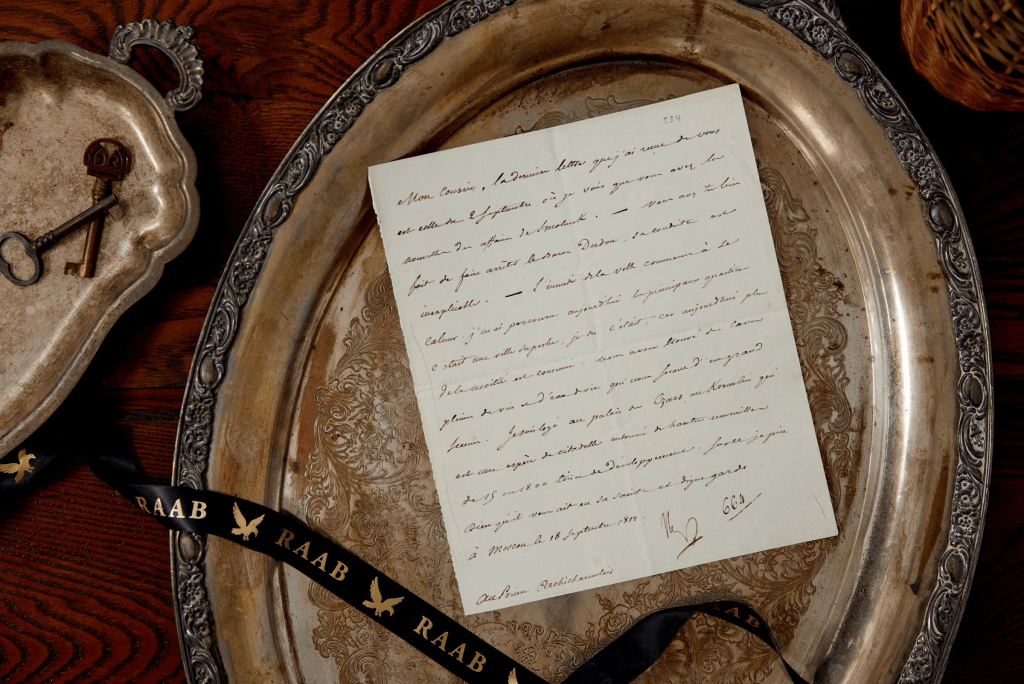 234
Mon Cousin, la dernière lettre que j'ai reçue de vous
est celle du 2 Septembre où je vois que vous avez la
nouvelle des affaires de Smolensk. — vous avez très bien
fait de faire arrêter le Baron Dudon; sa conduite est
inexplicable. — l'incendie de la ville commence à se
calmer. j'ai parcouru aujourd'hui les principaux quartiers
c'était une ville superbe, je dis c'était, car aujourd'hui plus
de la moitié est consumé. nous avons trouvé des caves
pleines de vin et d'eau de vie qui nous seront d'un grand
secours. Je suis logé au palais des Czars au Kremlin qui
est une espèce de citadelle entourée de hautes murailles
de 15 ou 1800 toises de développement. Sur ce je prie
Dieu qu'il vous ait en sa sainte et digne garde
à Moscou le 18 Septembre 1812
664
Au Prince Archichancelier
RAAB
RAAB
RAAB
RAAB